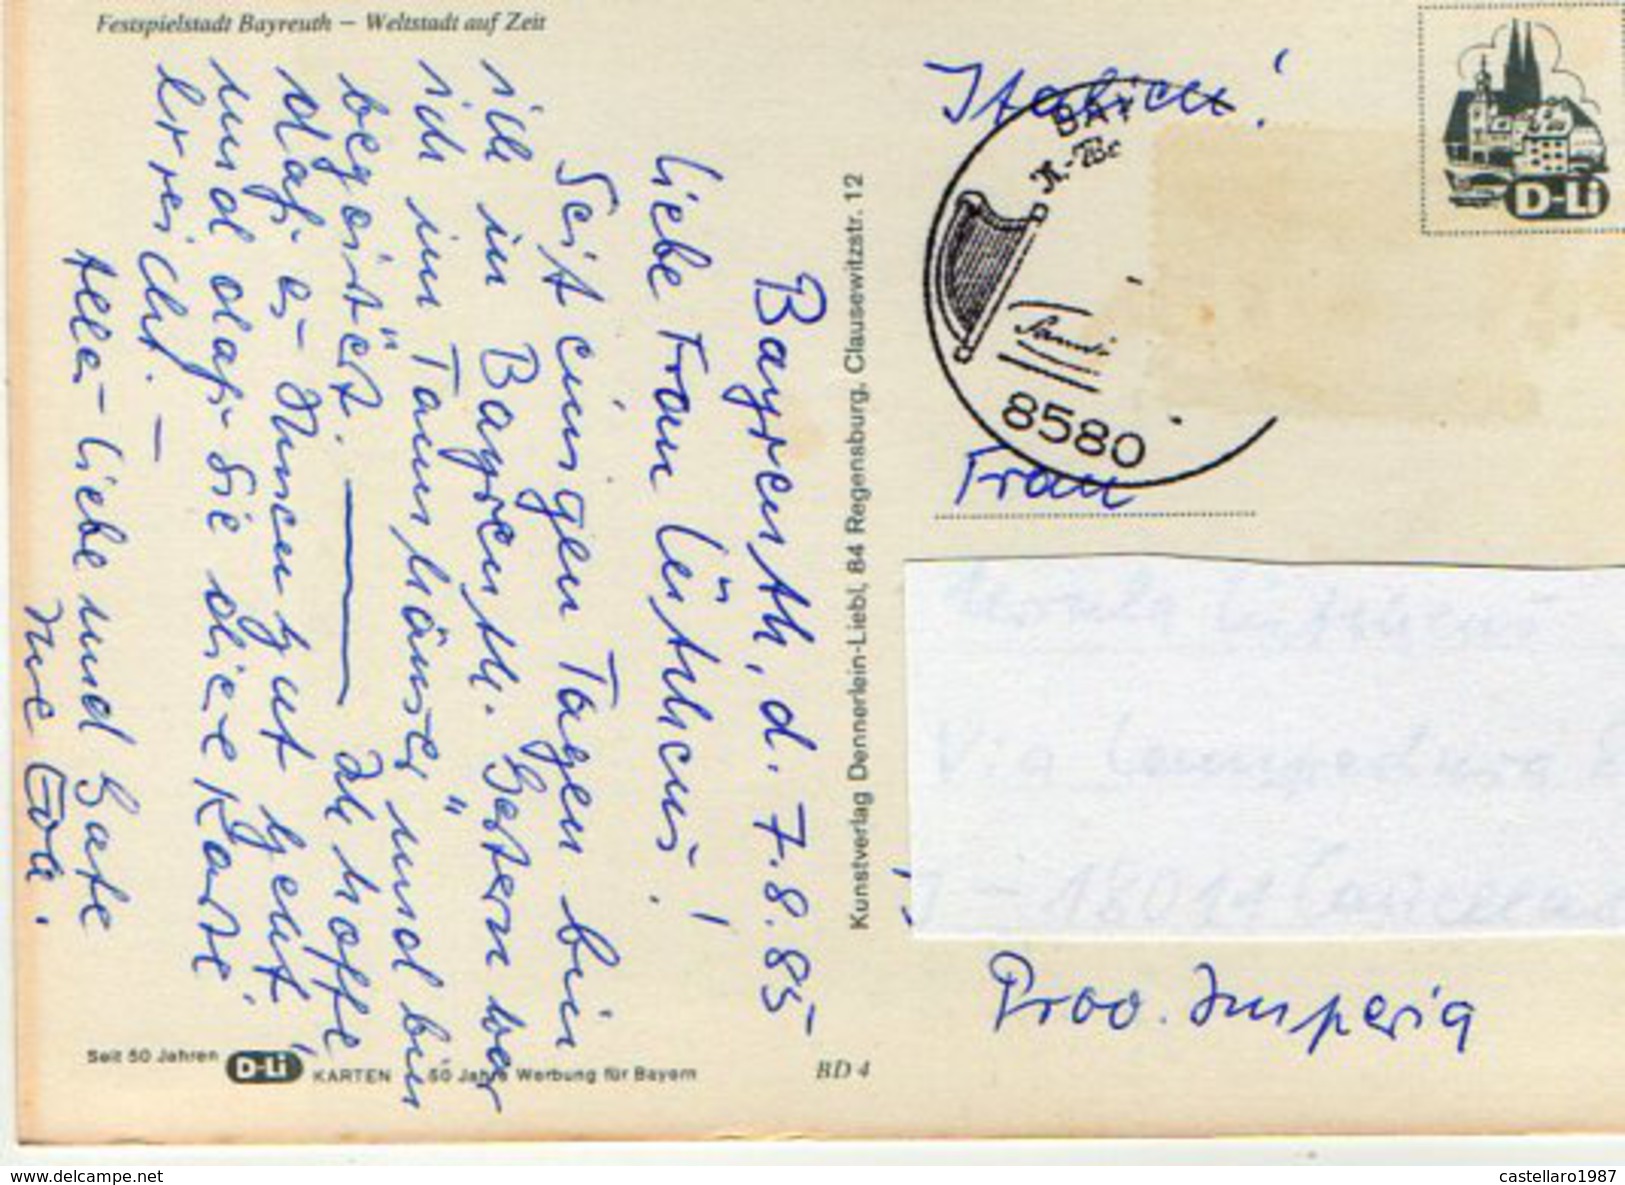 Festspielstadt Bayreuth — Weltstadt auf Zeit
Bayreuth, d. 7.8.85
Liebe Frau Lüthens!
Seit einigen Tagen bin
ich in Bayreuth. Gestern war
ich im Tannhäuser" und bin
begeistert. — Ich hoffe
daß es Ihnen gut geht,
und daß Sie diese Karte
erreicht. —
Alles Liebe und Gute
Ihre Eva.
Seit 50 Jahren D-Li KARTEN 50 Jahre Werbung für Bayern
BD 4
Kunstverlag Dennerlein-Liebl, 84 Regensburg, Clausewitzstr. 12
Italien!
D-Li
BAY
8580
Frau
Via
Prov. Imperia
castellaro1987